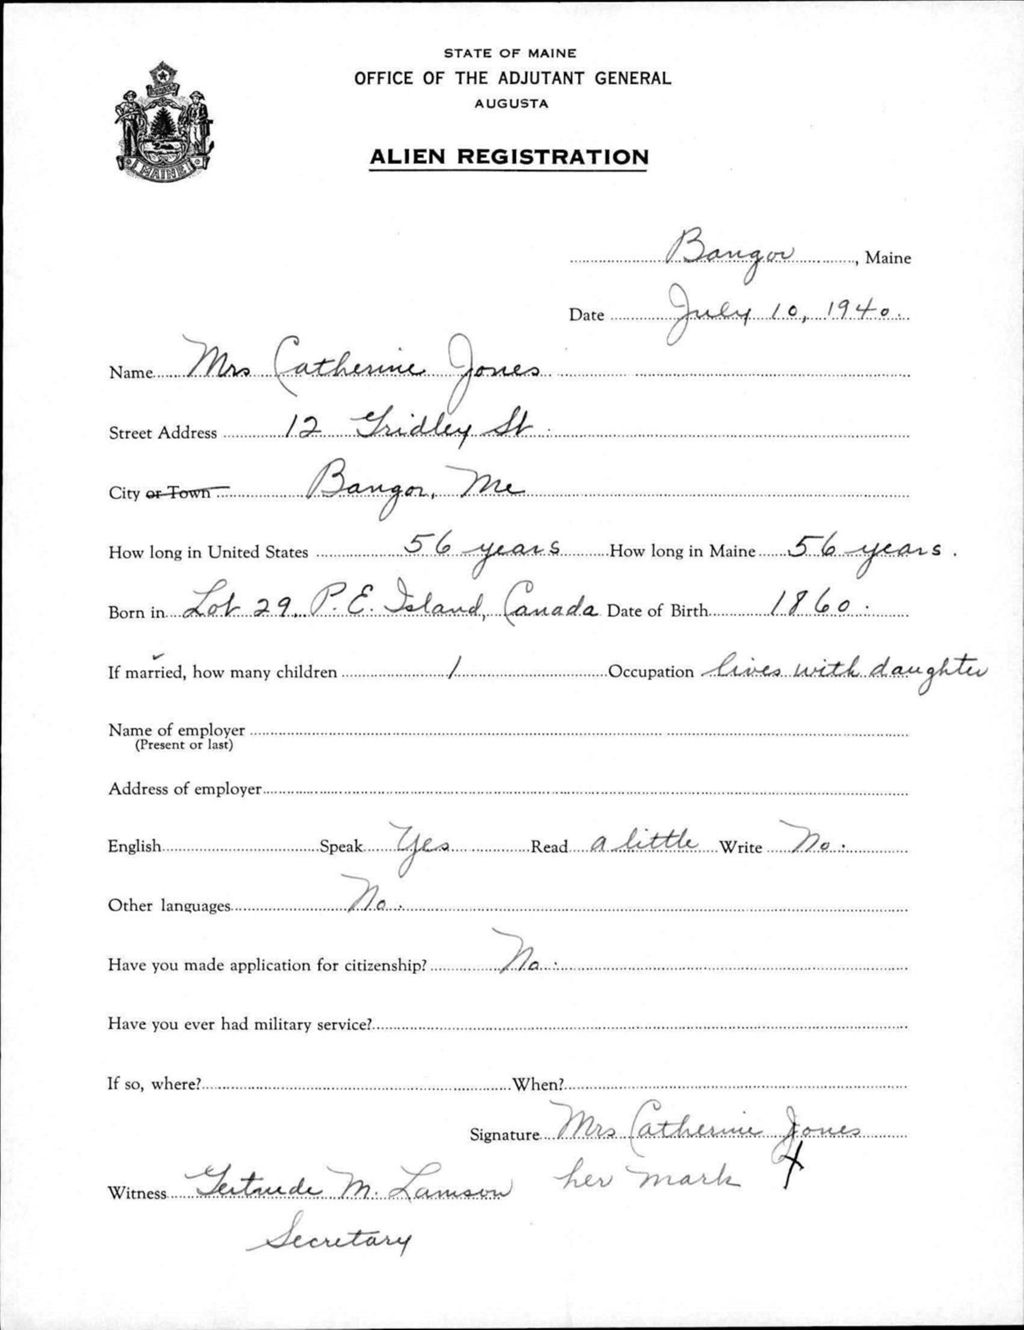 STATE OF MAINE
OFFICE OF THE ADJUTANT GENERAL
AUGUSTA
ALIEN REGISTRATION
MAINE
Bangor, Maine
Date July 10, 1940.
Name Mrs Catherine Jones
Street Address 12 Gridley St.
City or Town Bangor, Me
How long in United States 56 years How long in Maine 56 years.
Born in Lot 29, P.E. Island, Canada Date of Birth 1860.
If married, how many children 1 Occupation lives with daughter
Name of employer
(Present or last)
Address of employer
English Speak Yes Read a little Write No.
Other languages No.
Have you made application for citizenship? No.
Have you ever had military service?
If so, where? When?
Signature Mrs Catherine Jones
Witness Gertrude M. Lamson her mark X
Secretary